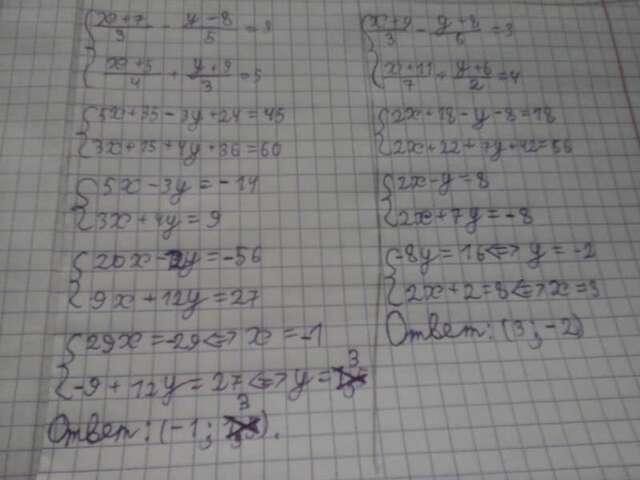 { (x+7)/3 - (y-8)/5 = 3
{ (x+5)/4 + (y+9)/3 = 5
{ 5x+35-3y+24=45
{ 3x+15+4y+36=60
{ 5x-3y=-14
{ 3x+4y=9
{ 20x-12y=-56
{ 9x+12y=27
{ 29x=-29<=>x=-1
{ -9+12y=27<=>y=3
Ответ: (-1; 3).
{ (x+9)/3 - (y+8)/6 = 3
{ (x+11)/7 + (y+6)/2 = 4
{ 2x+18-y-8=18
{ 2x+22+7y+42=56
{ 2x-y=8
{ 2x+7y=-8
{ -8y=16<=>y=-2
{ 2x+2=8<=>x=3
Ответ: (3; -2)